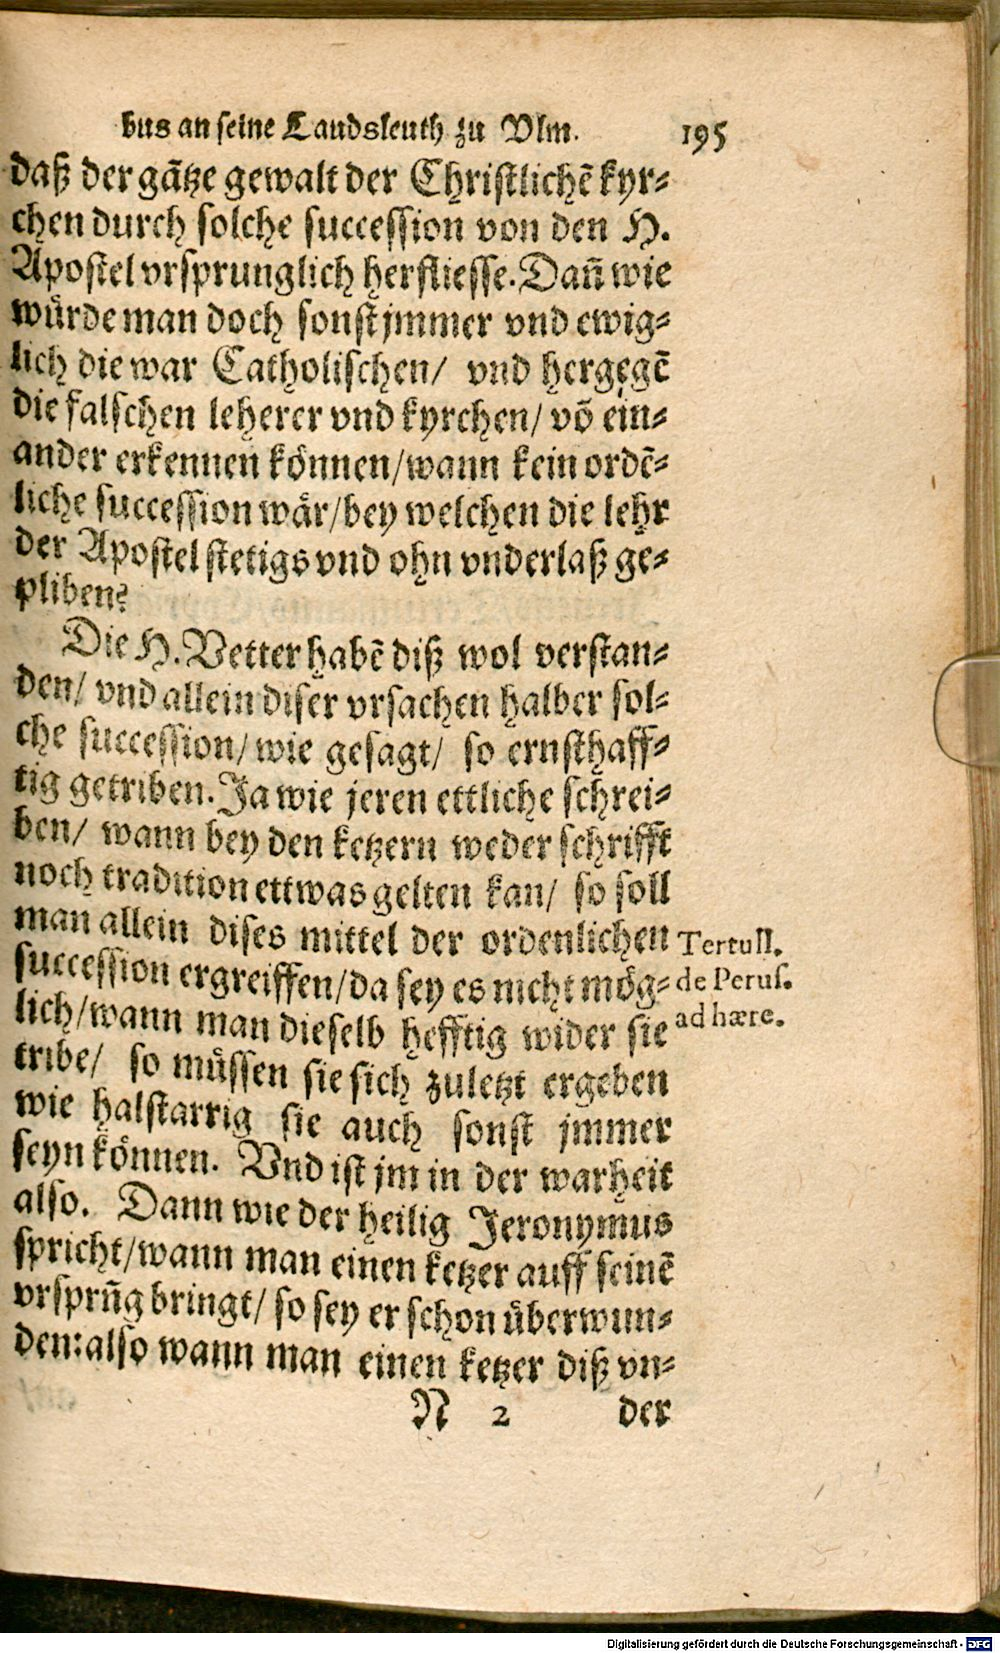 bus an seine Landsleuth zu Vlm. 195
daß der gātze gewalt der Christlichē kyr⸗
chen durch solche succession von den H.
Apostel vrsprunglich herfliesse. Dañ wie
wůrde man doch sonst jmmer vnd ewig⸗
lich die war Catholischen/ vnd hergegē
die falschen leherer vnd kyrchen/ vō ein⸗
ander erkennen können/wann kein ordē⸗
liche succession wår/bey welchen die lehr
der Apostel stetigs vnd ohn vnderlaß ge⸗
pliben?
Die H. Vetter habē diß wol verstan⸗
den/ vnd allein diser vrsachen halber sol⸗
che succession/ wie gesagt/ so ernsthaff⸗
tig getriben. Ja wie jeren ettliche schrei⸗
ben/ wann bey den ketzern weder schrifft
noch tradition ettwas gelten kan/ so soll
man allein dises mittel der ordenlichen
succession ergreiffen/da sey es nicht mög⸗
lich/wann man dieselb hefftig wider sie
tribe/ so můssen sie sich zuletzt ergeben
wie halstarrig sie auch sonst jmmer
seyn können. Vnd ist jm in der warheit
also. Dann wie der heilig Jeronymus
spricht/wann man einen ketzer auff seinē
vrsprũg bringt/ so sey er schon ůberwun⸗
den:also wann man einen ketzer diß vn⸗
Tertull.
de Perus.
ad hære.
N 2 der
Digitalisierung gefördert durch die Deutsche Forschungsgemeinschaft - DFG